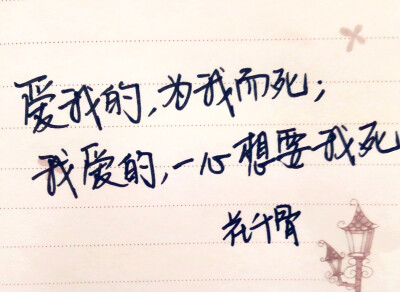 爱我的,为我而死;
我爱的,一心想要我死
花千骨